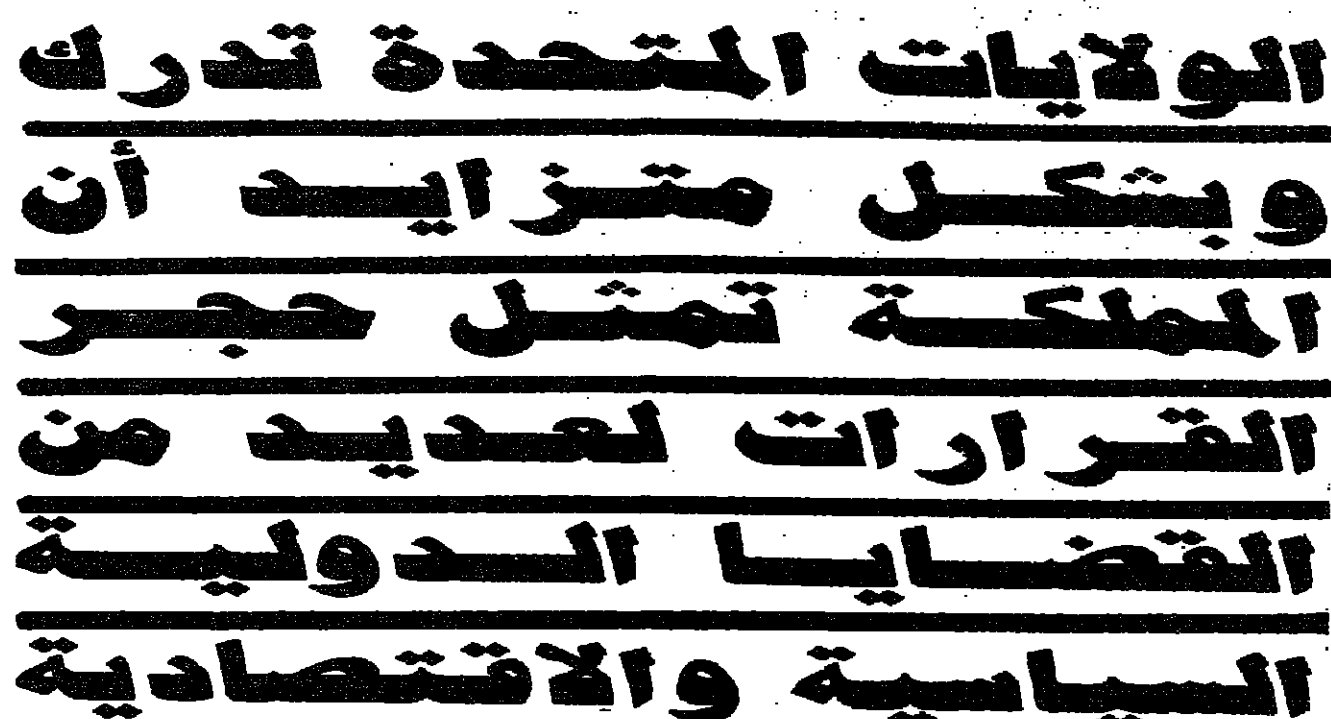 الولايات المتحدة تدرك
وبشكل متزايد أن
المملكة تمثل حجر
القرارات لعديد من
القضايا الدولية
السياسية والاقتصادية